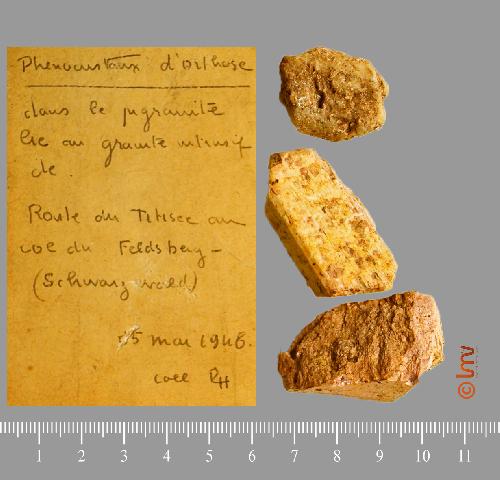 Phenocristaux d'orthose
dans le granite
lie au granite intrusif
de.
Route du Titisee au
col du Feldsberg -
(Schwarzwald)
15 mai 1948.
coll RH
© lmv
1 2 3 4 5 6 7 8 9 10 11